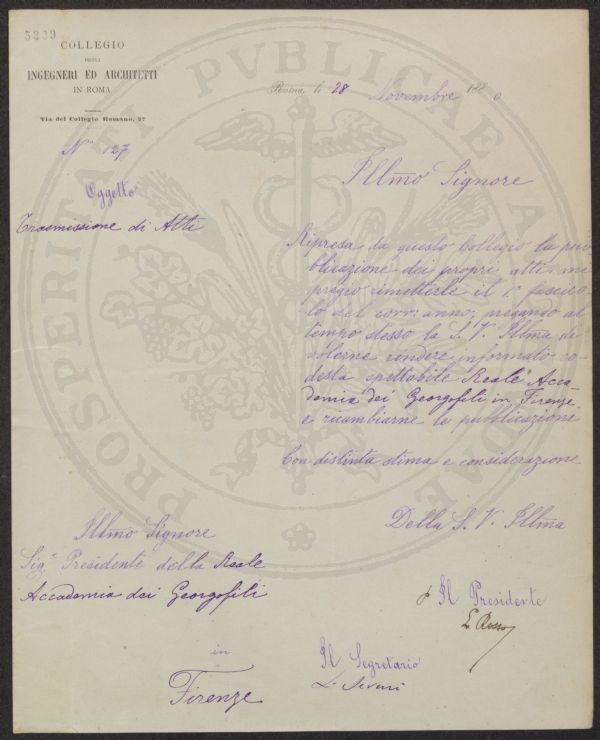 5209
COLLEGIO
DEGLI
INGEGNERI ED ARCHITETTI
IN ROMA
Via del Collegio Romano, 27
Roma, li 28 Novembre 188 0
N° 127
Oggetto
Trasmissione di Atti
Illmo Signore
Ripresa da questo Collegio la pub
blicazione dei propri atti mi
pregio rimetterle il 1° fascico
lo del corr: anno, pregando al
tempo stesso la S. V. Illma di
volerne rendere informato co-
desta spettabile Reale Acca
demia dei Georgofili in Firenze
e ricambiarne la pubblicazione
Con distinta stima e considerazione
Della S. V. Illma
Illmo Signore
Sig. Presidente della Reale
Accademia dei Georgofili
in
Firenze
Il Presidente
Il Segretario
PROSPERITATI PVBLICAE